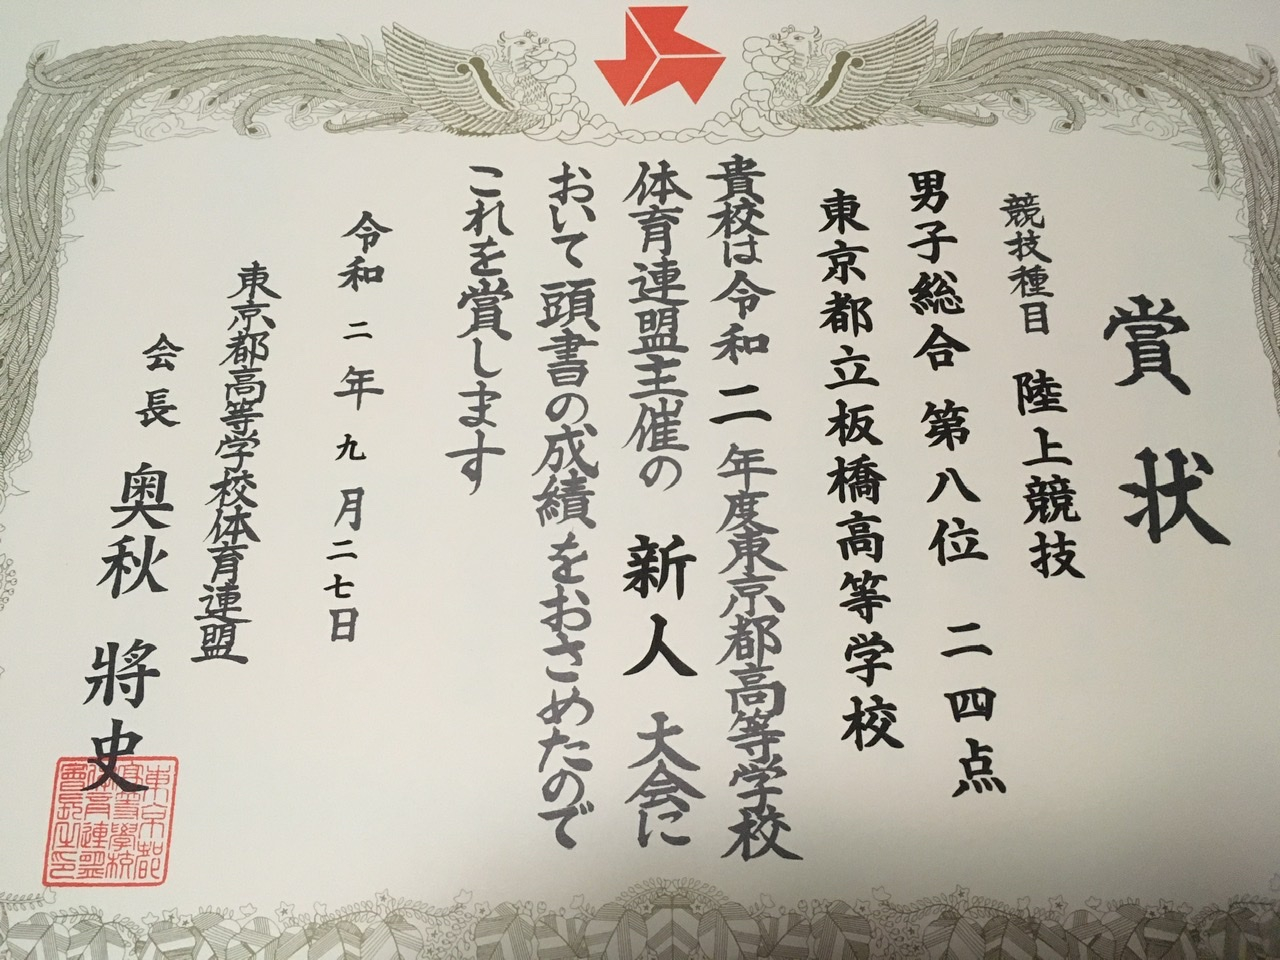 賞状
競技種目 陸上競技
男子総合 第八位 二四点
東京都立板橋高等学校
貴校は令和二年度東京都高等学校
体育連盟主催の 新人 大会に
おいて頭書の成績をおさめたので
これを賞します
令和二年九月二七日
東京都高等学校体育連盟
会長 奥秋 將史
東京都
高等學校
体育連盟
會長之印